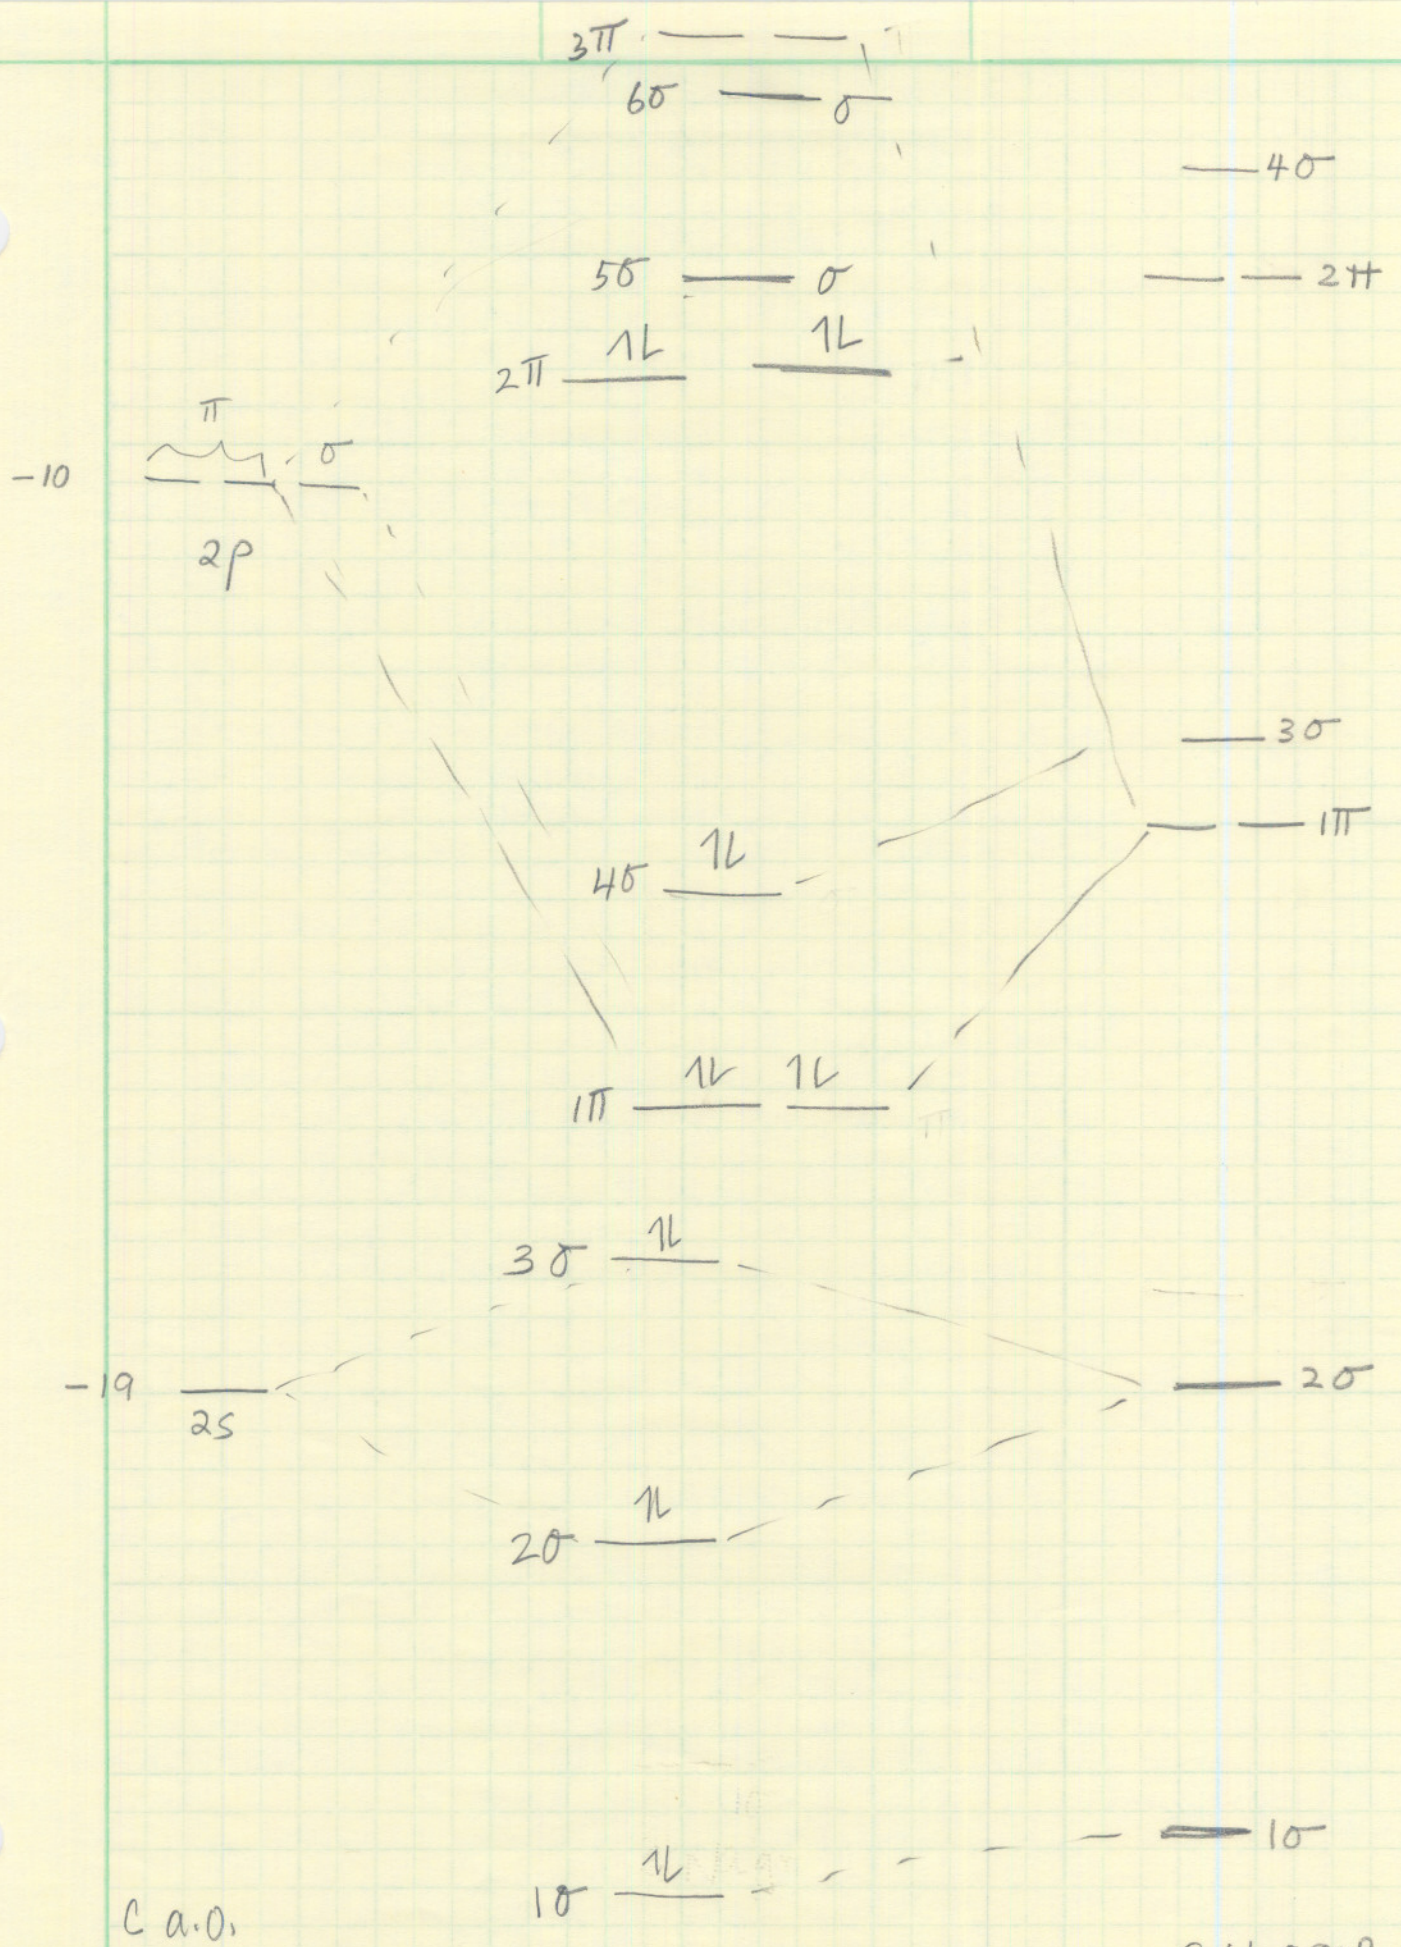 3π
6σ σ
4σ
5σ σ
2π
2π 1L 1L
π
σ
-10
2p
3σ
1π
4σ 1L
1π 1L 1L
3σ 1L
-19
2s
2σ
2σ 1L
1σ
1σ 1L
C a.o.